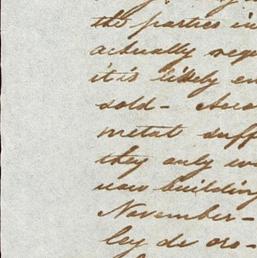 the parties in
actually
it is likely en
sold -
metal suff
they only
now building
November -
ley de oro -